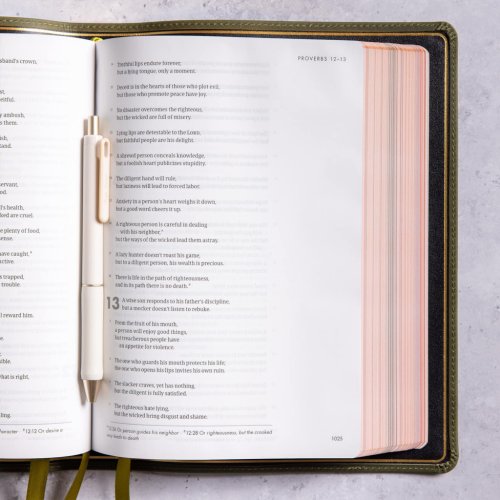 sband's crown,
st,
eitful.
y ambush,
s them.
ish,
stand.
servant,
od.
l's health,
ked are cruel.
e plenty of food,
sense.
have caught.
active.
s trapped,
trouble.
l reward him.
what is right,
ling.
12:12 Or desire a
PROVERBS 12–13
Truthful lips endure forever,
but a lying tongue, only a moment.
Deceit is in the hearts of those who plot evil,
but those who promote peace have joy.
No disaster overcomes the righteous,
but the wicked are full of misery.
Lying lips are detestable to the LORD,
but faithful people are his delight.
A shrewd person conceals knowledge,
but a foolish heart publicizes stupidity.
The diligent hand will rule,
but laziness will lead to forced labor.
Anxiety in a person's heart weighs it down,
but a good word cheers it up.
A righteous person is careful in dealing
with his neighbor,
but the ways of the wicked lead them astray.
A lazy hunter doesn't roast his game,
but to a diligent person, his wealth is precious.
There is life in the path of righteousness,
and in its path there is no death.
13 A wise son responds to his father's discipline,
but a mocker doesn't listen to rebuke.
From the fruit of his mouth,
a person will enjoy good things,
but treacherous people have
an appetite for violence.
The one who guards his mouth protects his life;
the one who opens his lips invites his own ruin.
The slacker craves, yet has nothing,
but the diligent is fully satisfied.
The righteous hate lying,
but the wicked bring disgust and shame.
12:26 Or person guides his neighbor 12:28 Or righteousness, but the crooked
way leads to death
1025